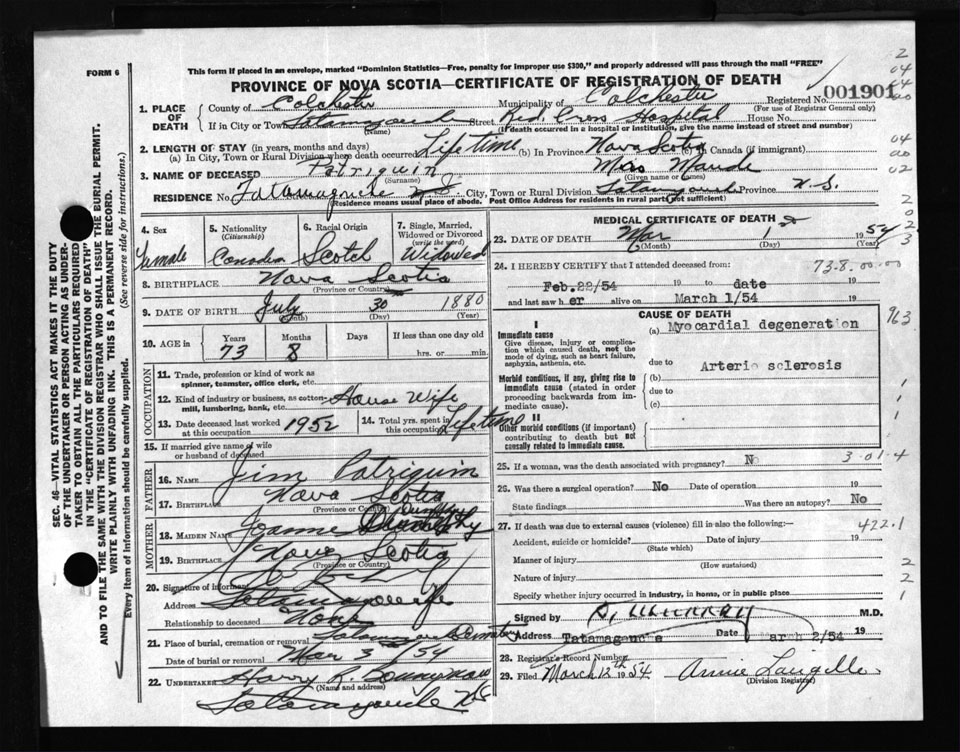 FORM 6
This form if placed in an envelope, marked "Dominion Statistics—Free, penalty for improper use $300," and properly addressed will pass through the mail "FREE"
PROVINCE OF NOVA SCOTIA—CERTIFICATE OF REGISTRATION OF DEATH
SEC. 46—VITAL STATISTICS ACT MAKES IT THE DUTY
OF THE UNDERTAKER OR PERSON ACTING AS UNDER-
TAKER TO OBTAIN ALL THE PARTICULARS REQUIRED
IN THE "CERTIFICATE OF REGISTRATION OF DEATH"
AND TO FILE THE SAME WITH THE DIVISION REGISTRAR WHO SHALL ISSUE THE BURIAL PERMIT.
WRITE PLAINLY WITH UNFADING INK. THIS IS A PERMANENT RECORD.
Every item of information should be carefully supplied. (See reverse side for instructions.)
1. PLACE OF DEATH County of Colchester Municipality of Colchester Registered No. 001901
(For use of Registrar General only)
If in City or Town Tatamagouche Street Red Cross Hospital House No.
(Name) (If death occurred in a hospital or institution, give the name instead of street and number)
2. LENGTH OF STAY (in years, months and days)
(a) In City, Town or Rural Division where death occurred Lifetime (b) In Province Nova Scotia (c) In Canada (if immigrant)
3. NAME OF DECEASED Patriquin Miss Maude
(Surname) (Given name or names)
RESIDENCE No. Tatamagouche N.S. City, Town or Rural Division Tatamagouche Province N.S.
(Residence means usual place of abode. Post Office Address for residents in rural parts not sufficient)
4. Sex Female
5. Nationality (Citizenship) Canadian
6. Racial Origin Scotch
7. Single, Married, Widowed or Divorced (write the word) Widowed
8. BIRTHPLACE Nova Scotia
(Province or Country)
9. DATE OF BIRTH July 30 1880
(Month) (Day) (Year)
10. AGE in Years 73 Months 8 Days If less than one day old
hrs. or min.
OCCUPATION
11. Trade, profession or kind of work as
spinner, teamster, office clerk, etc.
12. Kind of industry or business, as cotton-
mill, lumbering, bank, etc. House Wife
13. Date deceased last worked at this occupation 1952
14. Total yrs. spent in this occupation Lifetime
15. If married give name of wife
or husband of deceased
FATHER
16. NAME Jim Patriquin
17. BIRTHPLACE Nova Scotia
(Province or Country)
MOTHER
18. MAIDEN NAME Jeanne
19. BIRTHPLACE Nova Scotia
(Province or Country)
20. Signature of informant
Address Tatamagouche
Relationship to deceased None
21. Place of burial, cremation or removal Tatamagouche Cemetery
Date of burial or removal Mar 3/54
22. UNDERTAKER Harry R.
(Name and address)
Tatamagouche N.S.
MEDICAL CERTIFICATE OF DEATH
23. DATE OF DEATH Mar 1 1954
(Month) (Day) (Year)
24. I HEREBY CERTIFY that I attended deceased from: 73-8.00.00
Feb.22/54 19 to date 19
and last saw her alive on March 1/54 19
CAUSE OF DEATH
I
Immediate cause
Give disease, injury or complication which caused death, not the mode of dying, such as heart failure, asphyxia, asthenia, etc.
(a) Myocardial degeneration 963
due to Arterio sclerosis
Morbid conditions, if any, giving rise to immediate cause (stated in order proceeding backwards from immediate cause).
(b)
due to
(c)
II
Other morbid conditions (if important) contributing to death but not causally related to immediate cause.
25. If a woman, was the death associated with pregnancy? No 3-01-4
26. Was there a surgical operation? No Date of operation 19
State findings Was there an autopsy? No
27. If death was due to external causes (violence) fill in also the following:— 422.1
Accident, suicide or homicide? Date of injury 19
(State which)
Manner of injury
(How sustained)
Nature of injury
Specify whether injury occurred in industry, in home, or in public place
Signed by M.D.
Address Tatamagouche Date March 2/54 19
28. Registrar's Record Number
29. Filed March 12th 1954 Annie Langille
(Division Registrar)